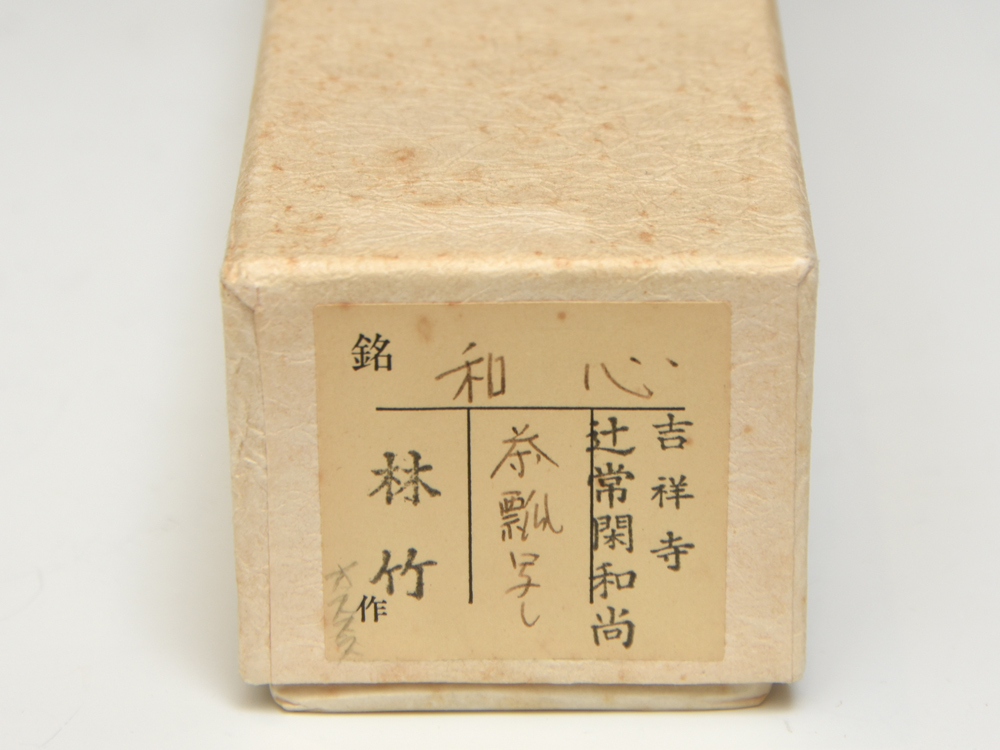 銘 和心
吉祥寺
辻常閑和尚
茶瓢写し
林竹
作